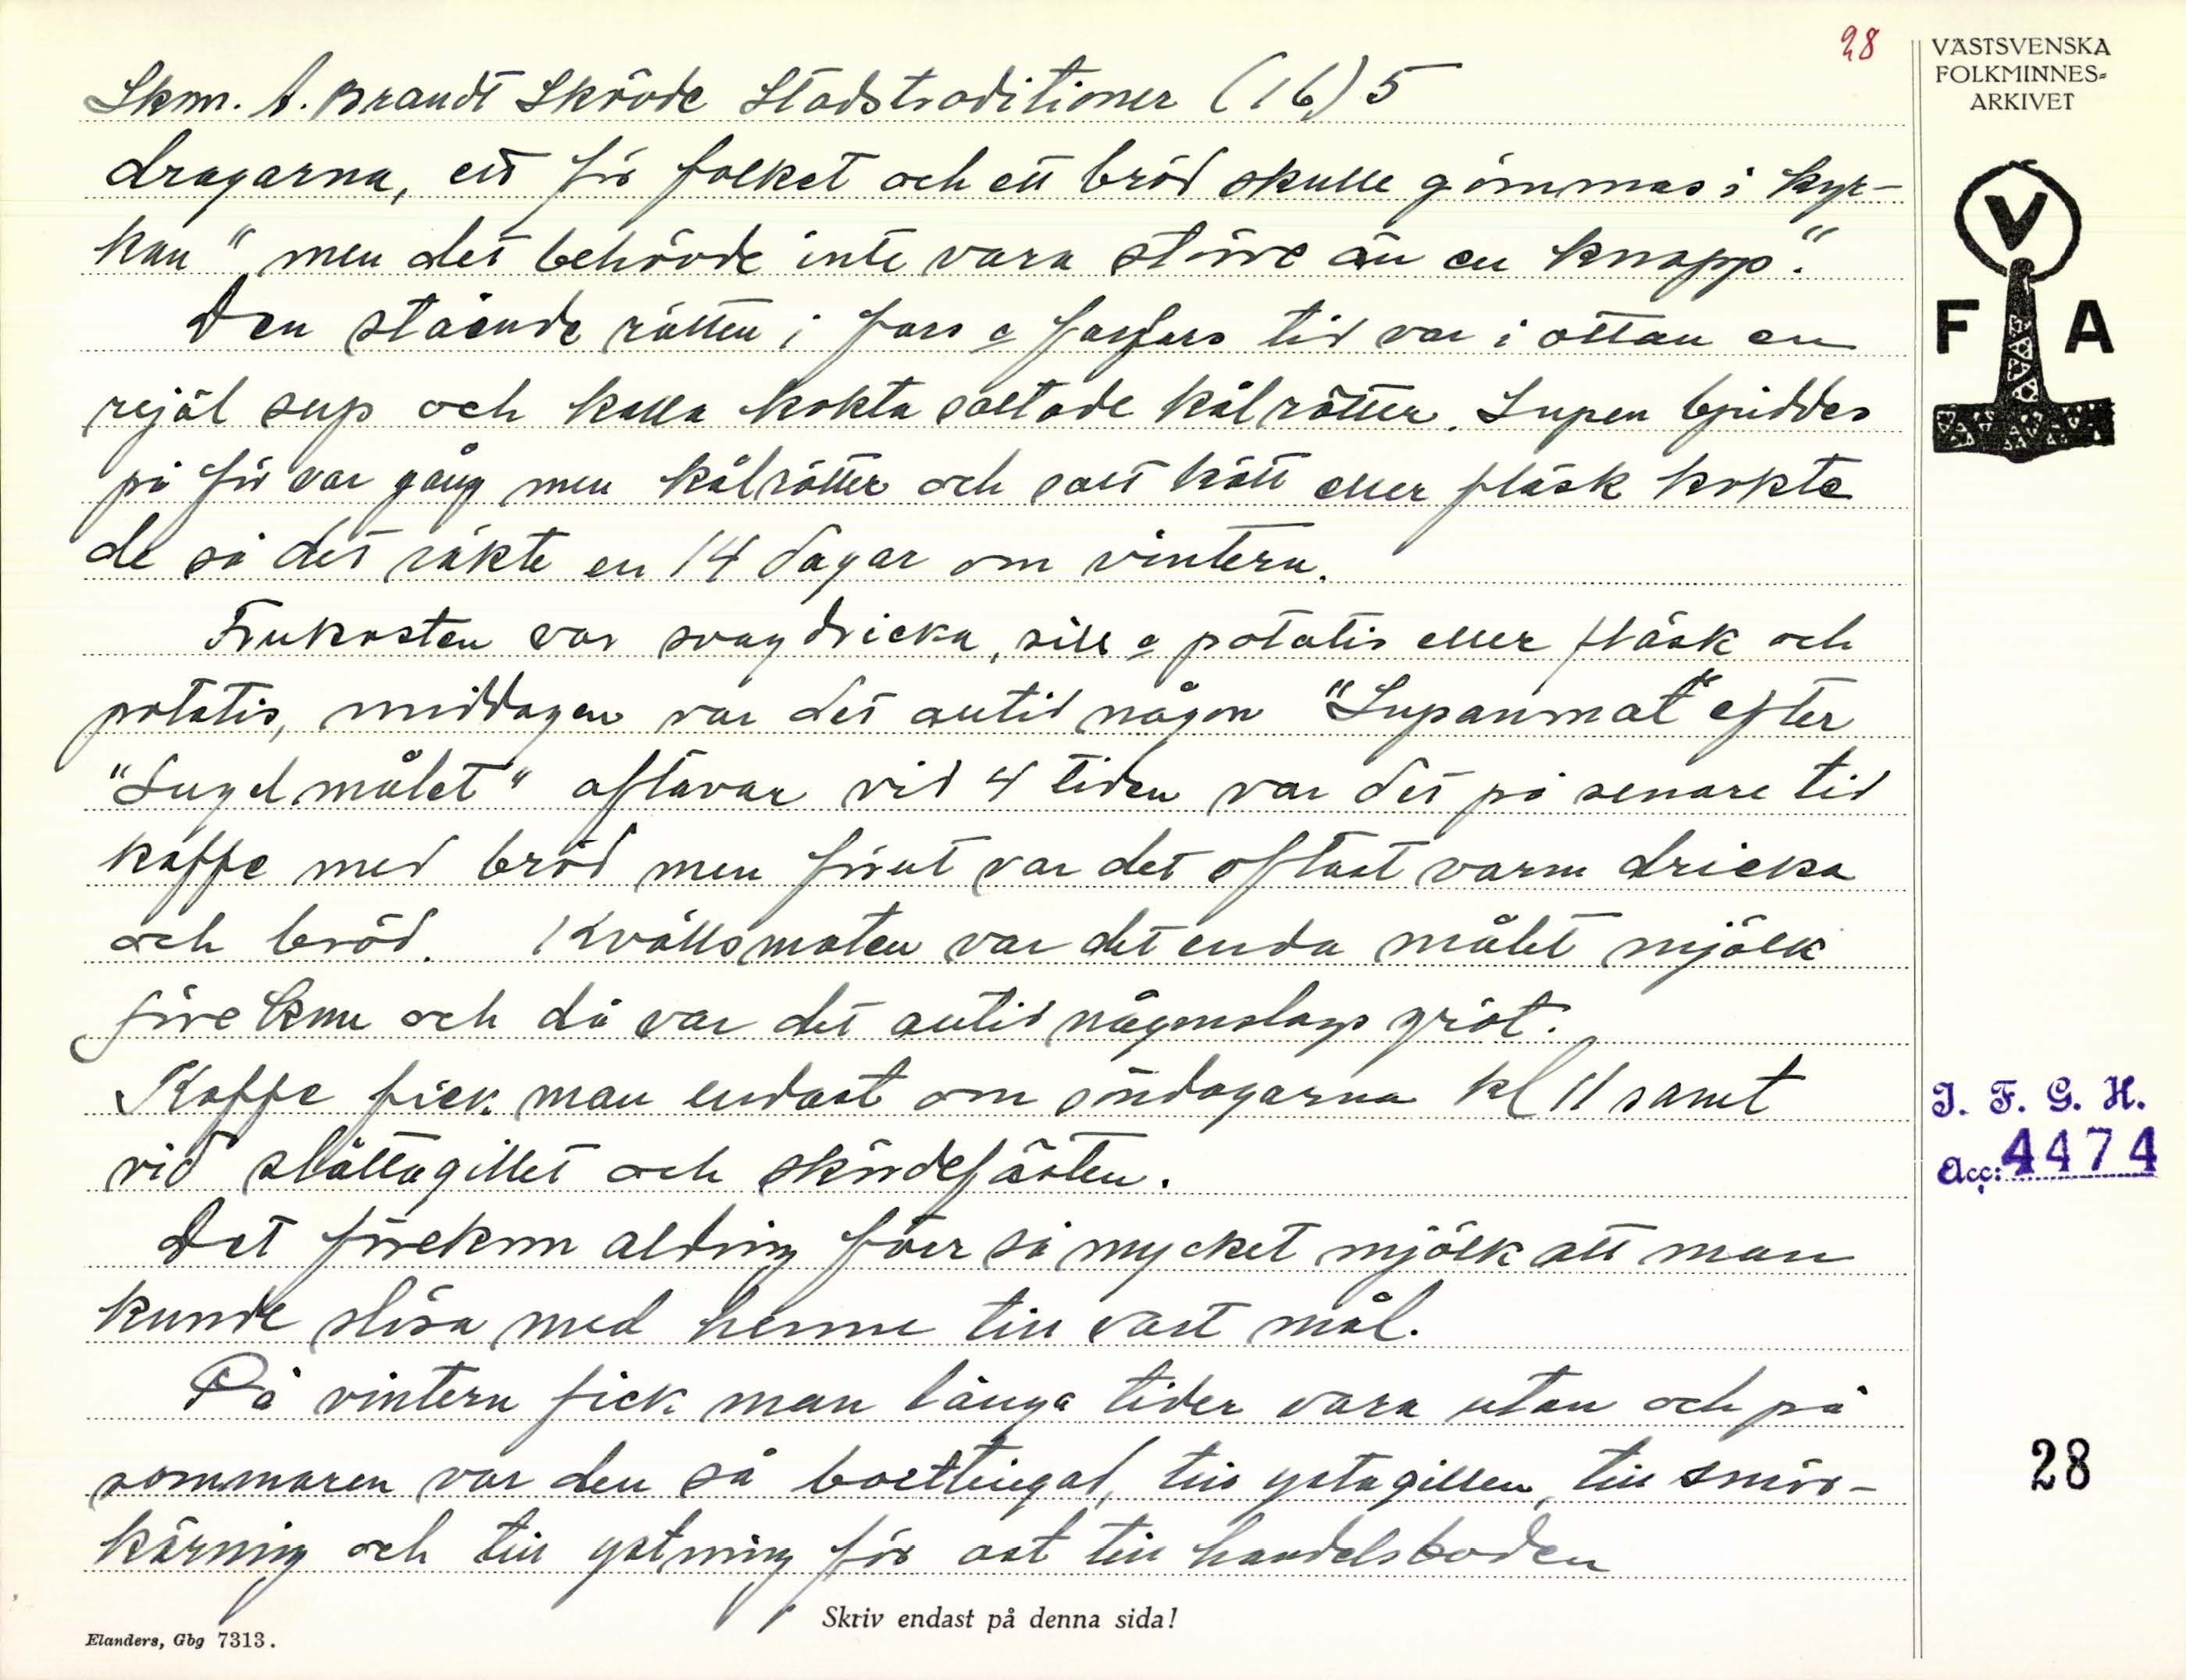 28
VÄSTSVENSKA
FOLKMINNES-
ARKIVET
Skm. A. Brandt Skövde Stadstraditioner (16) 5
dragarna, ett för folket och ett bröd skulle gömmas i kyr-
kan "men det behövde inte vara större än en knapp."
Den stående rätten i fars o farfars tid var i ottan en
rejäl sup och kalla kokta saltade kålrötter. Supen bjuddes
på för var gång men kålrötter och salt kött eller fläsk kokte
de så det räkte en 14 dagar om vintern.
Frukosten var svagdricka, sill o potatis eller fläsk och
potatis, middagen var det altid någon "Supanmat" efter
"Sugelmålet" aftavar vid 4 tiden var det på senare tid
kaffe med bröd men förut var det oftast varm dricka
och bröd. Kvällsmaten var det enda målet mjölk
förekom och då var det altid någonslags gröt.
Kaffe fick man endast om söndagarna kl 11 samt
vid slåttagillet och skördefästen.
Det förekom aldrig förr så mycket mjölk att man
kunde slösa med henne till vart mål.
På vintern fick man långa tider vara utan och på
sommaren var den så bortlingad, till ystagillen, till smör-
kärning och till ystning för ost till handelsboden
Skriv endast på denna sida!
Elanders, Gbg 7313.
V
F A
I. F. G. H.
Acc: 4474
28